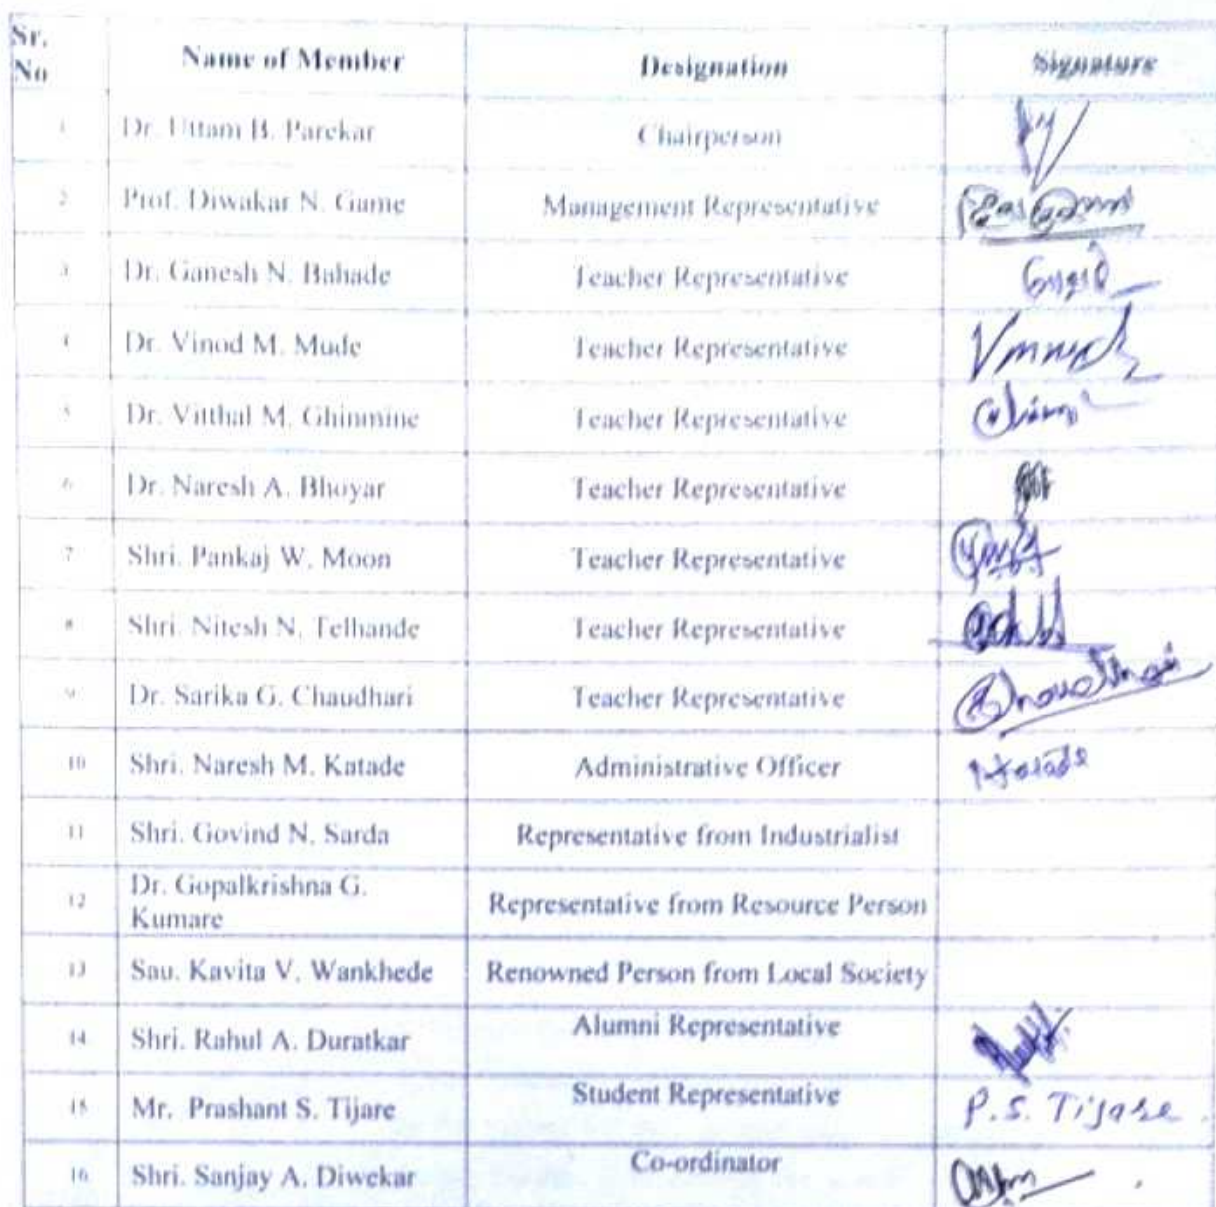 Sr. No Name of Member Designation Signature
1 Dr. Uttam B. Parekar Chairperson
2 Prof. Diwakar N. Game Management Representative
3 Dr. Ganesh N. Bahade Teacher Representative
4 Dr. Vinod M. Mude Teacher Representative
5 Dr. Vitthal M. Ghinmine Teacher Representative
6 Dr. Naresh A. Bhoyar Teacher Representative
7 Shri. Pankaj W. Moon Teacher Representative
8 Shri. Nitesh N. Telhande Teacher Representative
9 Dr. Sarika G. Chaudhari Teacher Representative
10 Shri. Naresh M. Katade Administrative Officer
11 Shri. Govind N. Sarda Representative from Industrialist
12 Dr. Gopalkrishna G. Kumare Representative from Resource Person
13 Sau. Kavita V. Wankhede Renowned Person from Local Society
14 Shri. Rahul A. Duratkar Alumni Representative
15 Mr. Prashant S. Tijare Student Representative P.S. Tijare
16 Shri. Sanjay A. Diwekar Co-ordinator